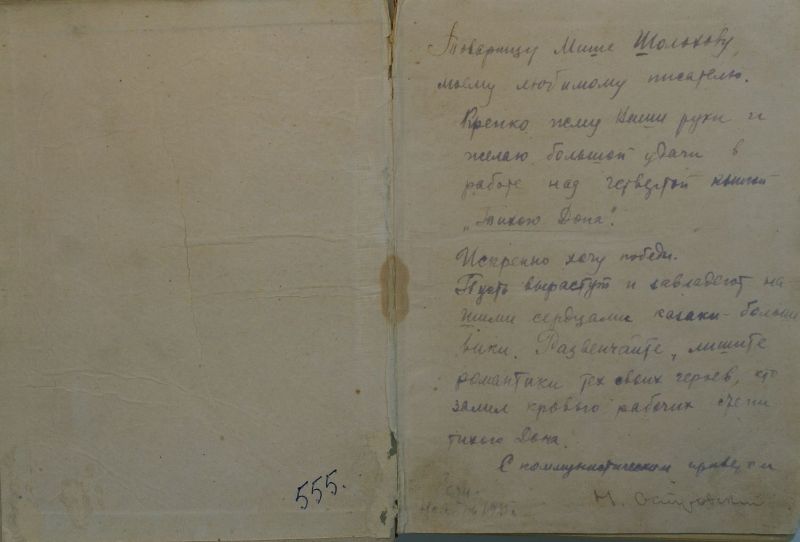 555.
Товарищу Мише Шолохову,
моему любимому писателю.
Крепко жму Ваши руки и
желаю большой удачи в
работе над четвертой книгой
„Тихого Дона".
Искренно хочу победы.
Пусть вырастут и завладеют на-
шими сердцами казаки-больше
вики. Развенчайте, лишите
романтики тех своих героев, кто
залил кровью рабочих степи
тихого Дона.
С коммунистическим приветом
Н. Островский
Сочи.